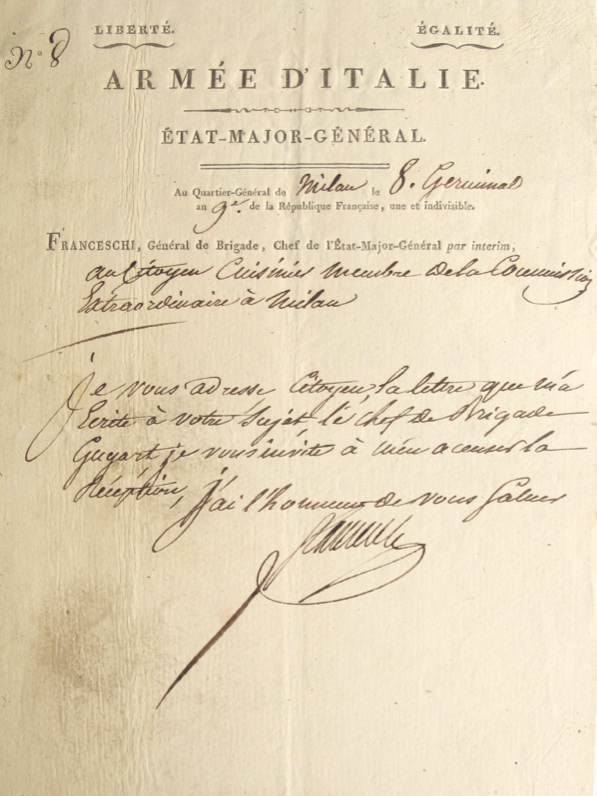 N.º 8
LIBERTÉ. ÉGALITÉ.
ARMÉE D'ITALIE.
ÉTAT-MAJOR-GÉNÉRAL.
Au Quartier-Général de Milan le 8. Germinal
an 9e. de la République Française, une et indivisible.
FRANCESCHI, Général de Brigade, Chef de l'État-Major-Général par interim,
au Citoyen Cuisinier membre de la Commission
Extraordinaire à Milan
Je vous adresse Citoyen, la lettre que m'a
Ecrite à votre Sujet, le chef de Brigade
Guyart je vous invite à m'en accuser la
Réception, j'ai l'honneur de vous Saluer